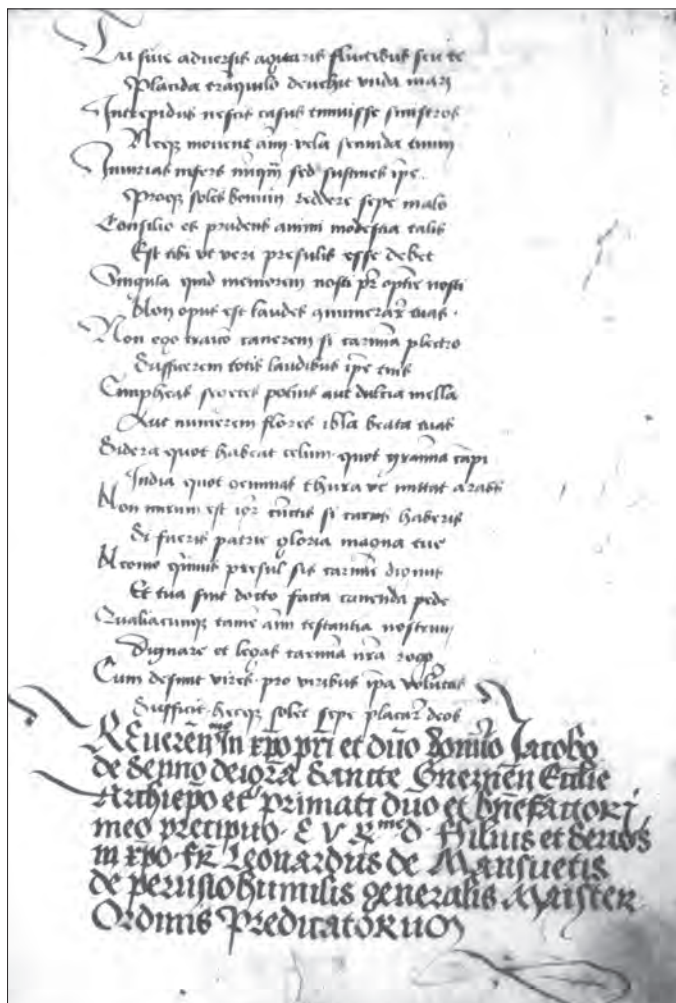 Tu sive adversis agitaris fluctibus seu te
Placida trãquilo devehit unda mari
Intrepidus nescis casus timuisse sinistros
Necq movent aĩm vela secunda tuum
Iniurias infers nũq̃ sed sustines ip̃e.
Proq soles bonum reddere sepe malo
Consilio es prudens animi modestia talis
Est tibi ut veri presulis esse debet
Singula quid memorem nosti pr̃ optĩe nosti
Non opus est laudes ꝯnumerar̃ tuas.
Non ego traico canerem si carmina plectro
Sufficerem totis laudibus ip̃e tuis
potius aut dulcia mella
Aut numerem flores ibla beata tuos
Sidera quot habeat celum quot gramina cãpi
India quot gemmas thura vĩ mittat arabs
Non mirum est igr̃ cũctis si carus haberis
Si fueris patrie gloria magna tue
Nemo presul sit carmĩe dignus
Et tua sint docto facta canenda pede
Qualiacunq tamẽ aĩm testantia nostrum
Dignare et legas carmina nr̃a rogo
Cum desint vires pro viribus ip̃a volũtas
Sufficit. Hecq solet sepe placar̃ deos
Reverẽmo In xp̃o pr̃i et dño domĩo Jacobo
de Senno dei gr̃a Sancte Gneznẽn Ecclie
Archiepõ et primati dño et bñefactori
meo precipuo. E V R^me d. filius et
in xp̃o fr̃. Leonardus de Mansuetis
de perusio humilis generalis Maister
Ordinis Predicatorum